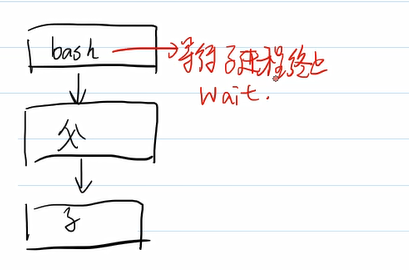 bash
等待子进程终止
wait.
父
子